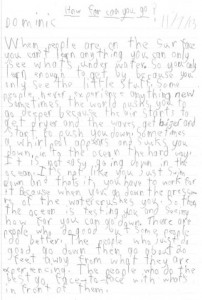 How far can you go?
Dominic
When people are on the surface
you can't learn anything you can only
see what's under water so you
learn enough to get by because you
only see the little stuff. Some
people never experience anything new
Sometimes the world pushes you to
go deeper because the air starts to
get dryer and the waves get
start to push you down. Sometimes
a whirlpool appears and sucks you
down, in to the ocean the hard way.
It's not easy going down in the
ocean. It's not like you just swim
down but thats it, you have to work for
it. Because when you go down the pressure
of the water crushes you. So then
the ocean is testing you and seeing
how far you can go down. There are
people who do good but some people
do better. The people who just do
good go down then go about
feet away from what they are
experiencing. The people who do the
best go face-to-face with what's
in front of them.